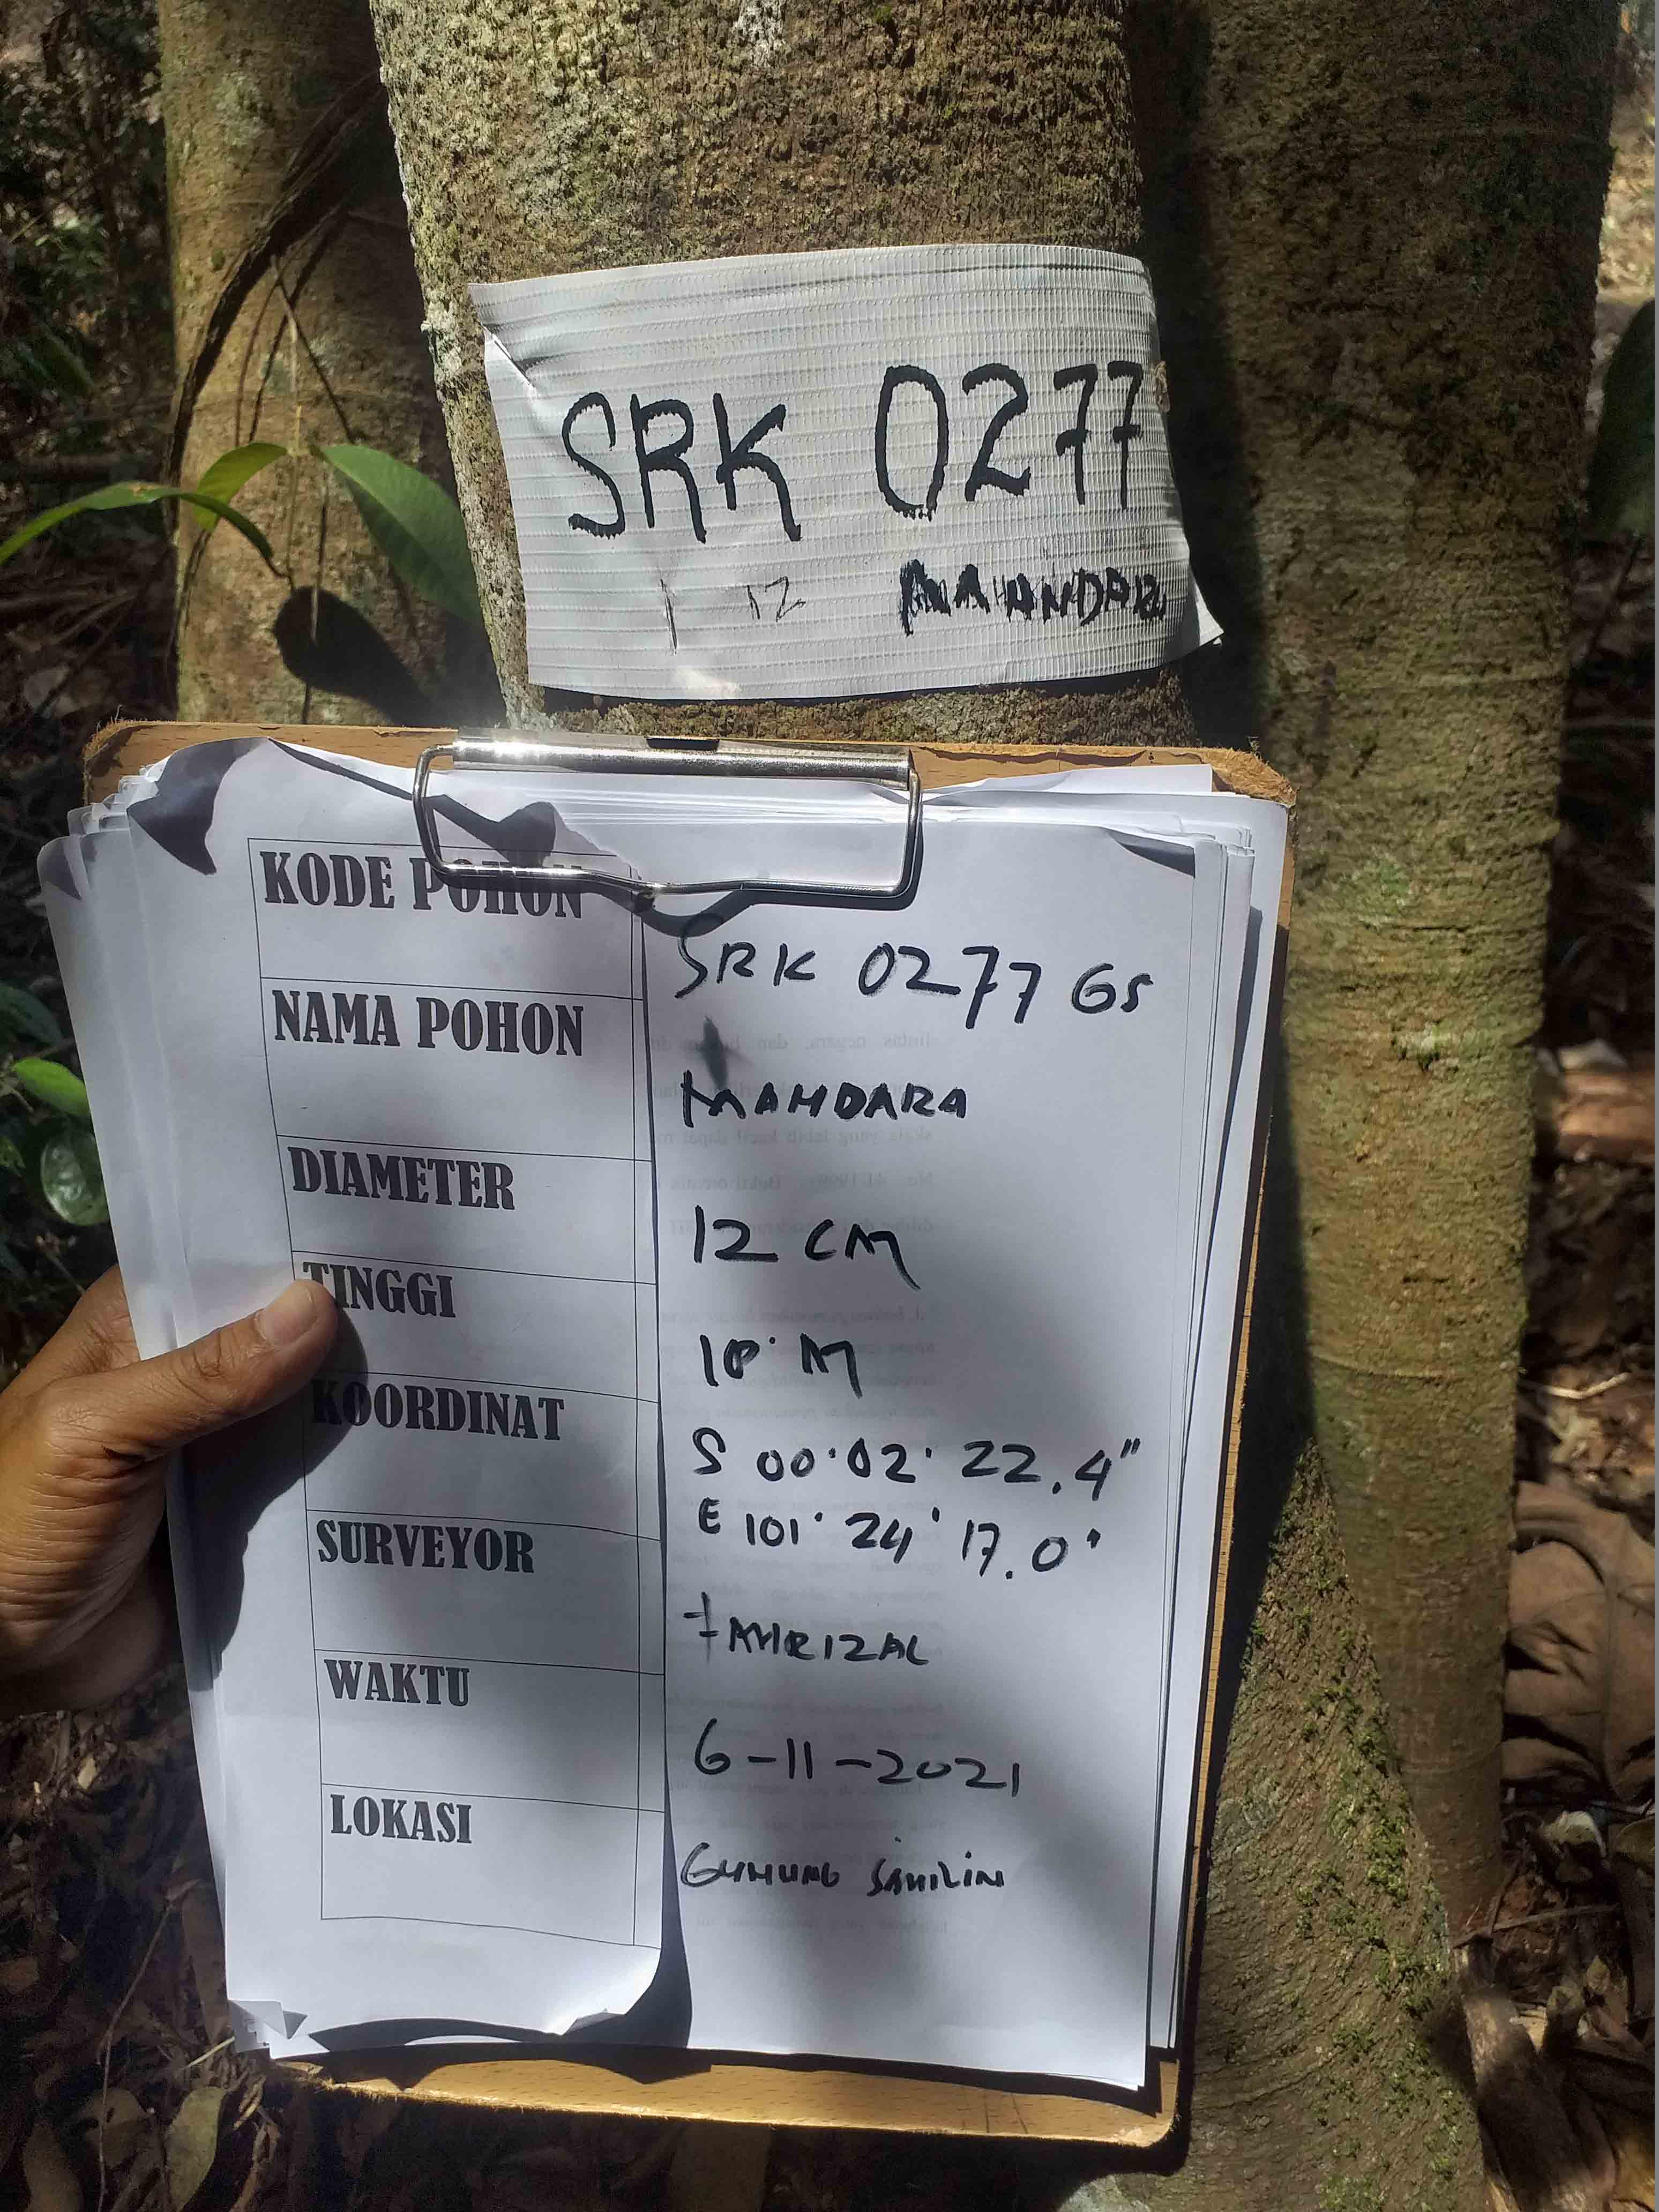 SRK 0277
12 MAHNDARA
KODE POHON SRK 0277 GS
NAMA POHON MAHDARA
DIAMETER 12 CM
TINGGI 10 M
KOORDINAT S 00° 02' 22.4"
E 101° 24' 17.0"
SURVEYOR FAHRIZAL
WAKTU 6-11-2021
LOKASI GUNUNG SAHILIN